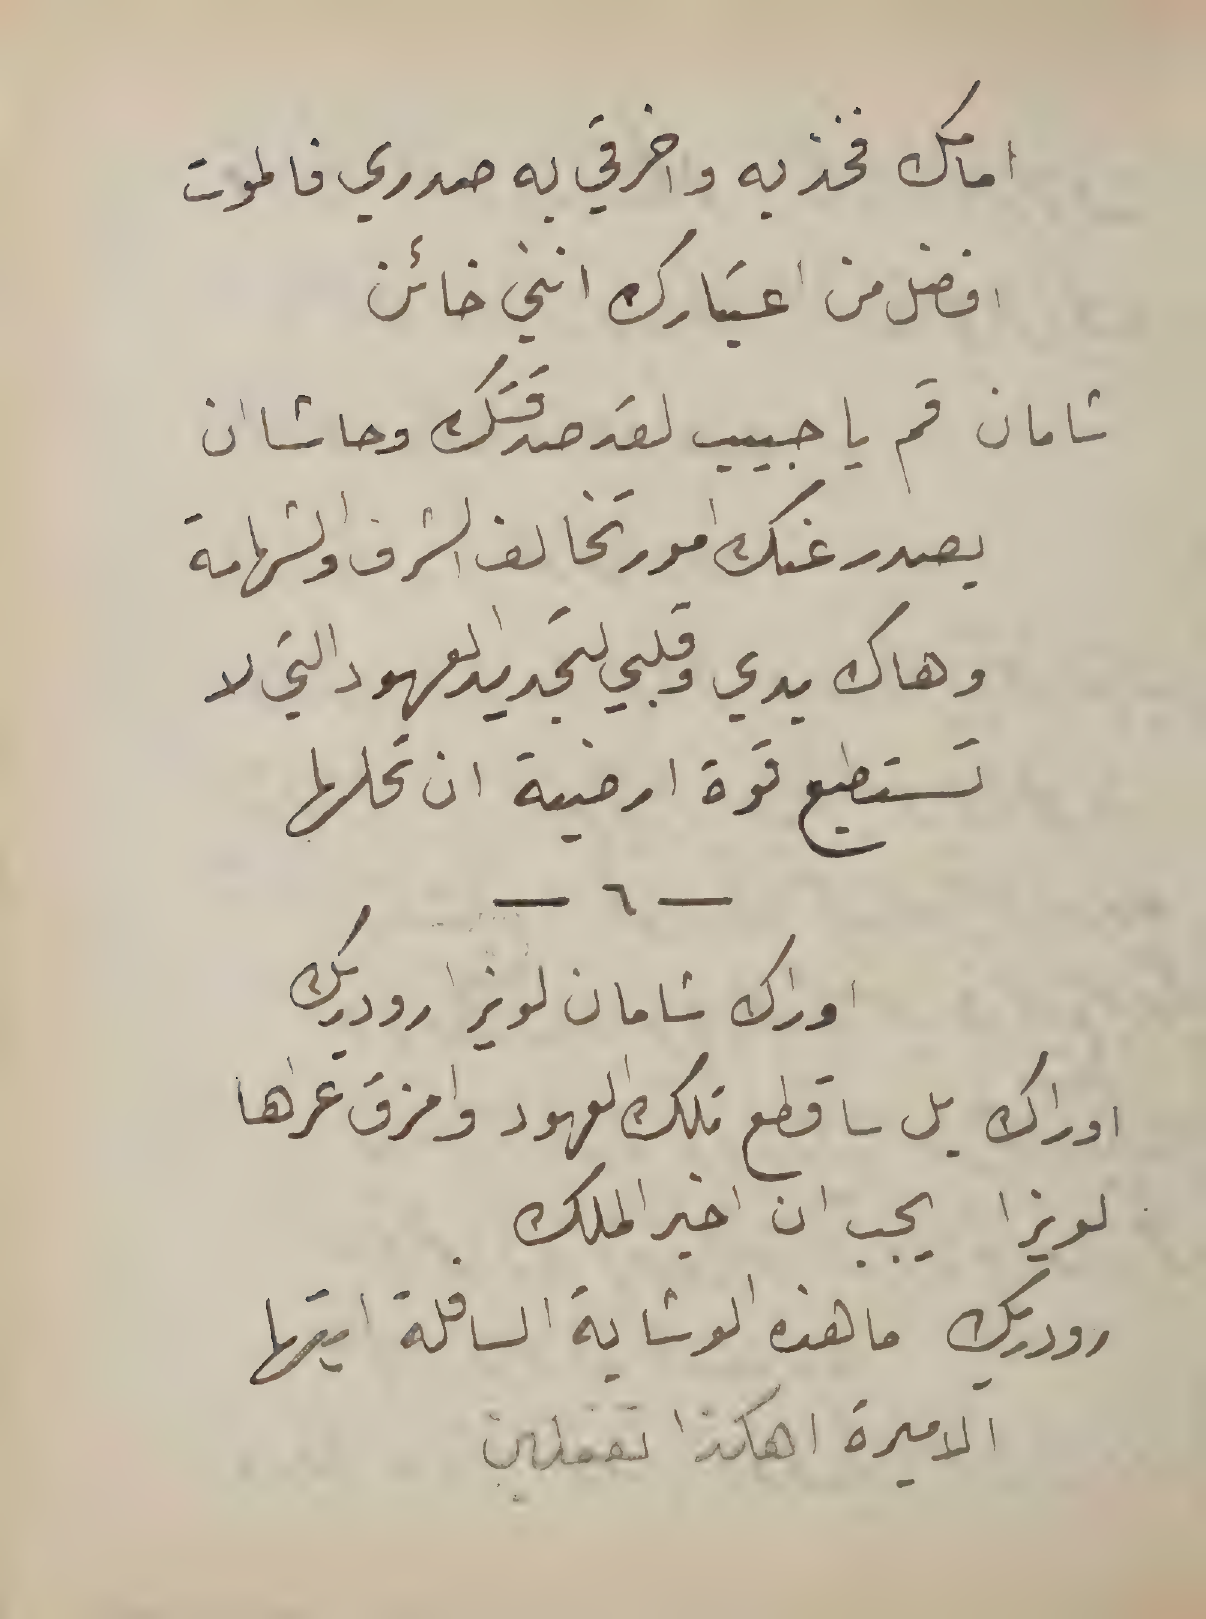 امامك فخذيه واخرقي به صدري فالموت
افضل من اعتبارك انني خائن
شامان قم يا حبيب لقد صدقتك وحاشا ان
يصدر عنك امور تخالف الشرف والشهامة
وهاك يدي وقلبي لتجديد العهود التي لا
تستطيع قوة ارضية ان تحلها
— ٦ —
اوراك شامان لويزا رودريك
اوراك بل ساقطع تلك العهود وامزق عراها
لويزا يجب ان اخبر الملك
رودريك ما هذه الوشاية السافلة ايتها
الاميرة اهكذا تفعلين